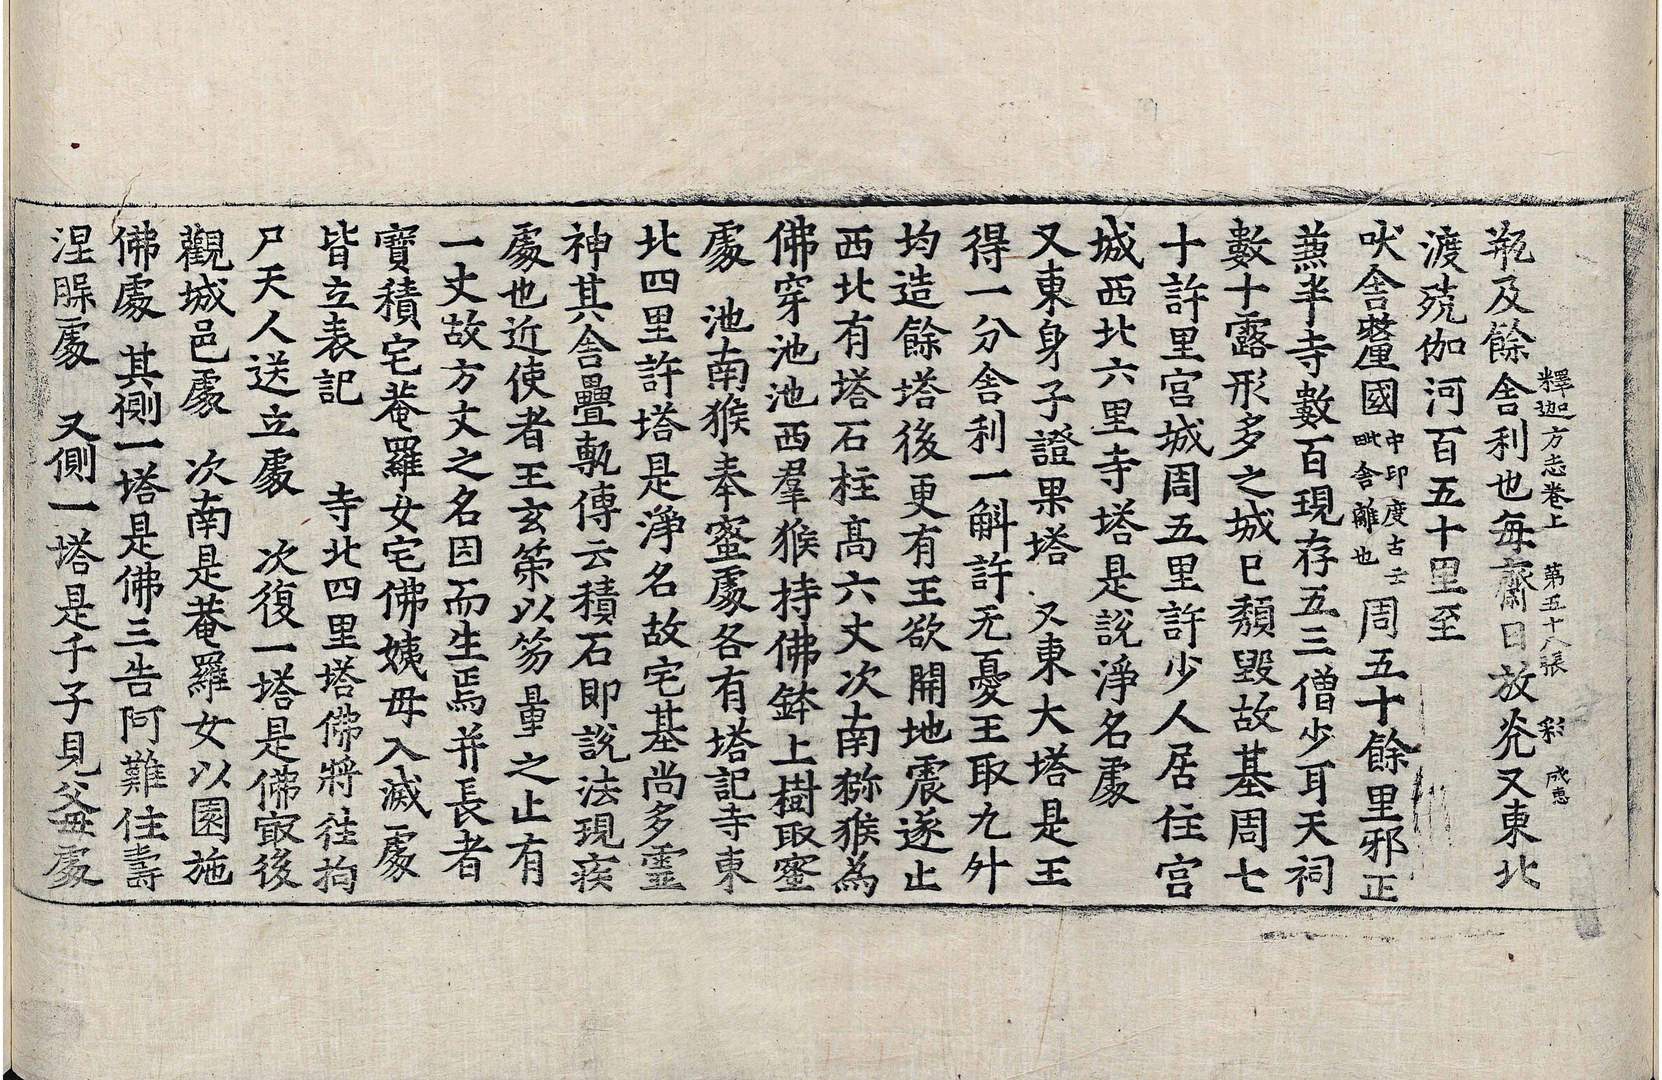 釋迦方志卷上 第五十八張 彩 成恵
瓶及餘舍利也每齋日放光又東北
渡殑伽河百五十里至
吠舍釐國中印度古云毗舍離也周五十餘里邪正
兼半寺數百現存五三僧少耳天祠
數十露形多之城已頽毀故基周七
十許里宮城周五里許少人居住宮
城西北六里寺塔是說淨名處
又東身子證果塔 又東大塔是王
得一分舍利一斛許无憂王取九升
均造餘塔後更有王欲開地震遂止
西北有塔石柱高六丈次南獼猴為
佛穿池池西羣猴持佛鉢上樹取蜜
處 池南猴奉蜜處各有塔記寺東
北四里許塔是淨名故宅基尚多靈
神其舍疊甎傳云積石即說法現疾
處也近使者王玄策以笏量之止有
一丈故方丈之名因而生焉并長者
寶積宅菴羅女宅佛姨母入滅處
皆立表記 寺北四里塔佛將往拘
尸天人送立處 次復一塔是佛㝡後
觀城邑處 次南是菴羅女以園施
佛處 其側一塔是佛三告阿難住壽
涅槃處 又側一塔是千子見父母處